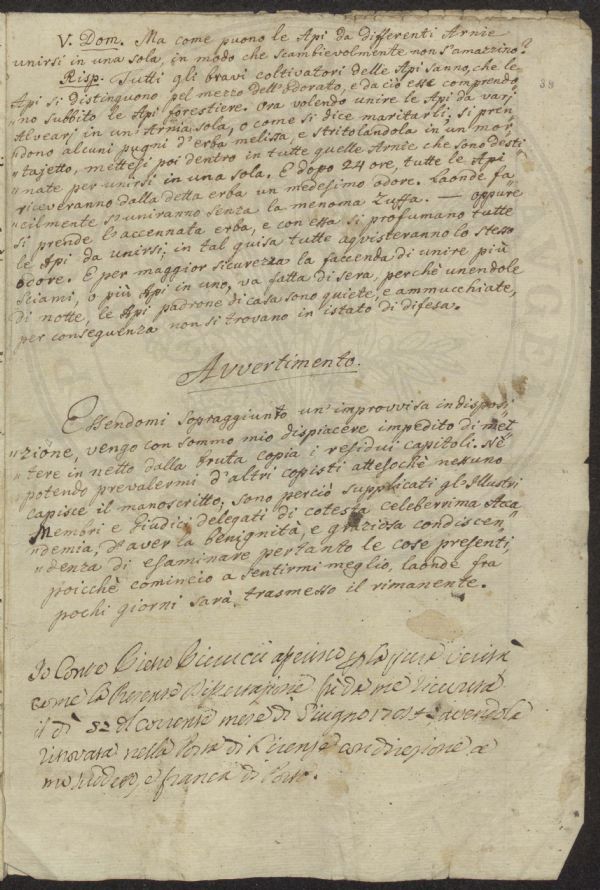 V. Dom. Ma come puono le Api da differenti Arnie
unirsi in una sola, in modo che scambievolmente non s'amazzino?
Risp. Tutti gli bravi coltivatori delle Api sanno, che le
Api si distinguono pel mezzo dell'Odorato, e da ciò esse comprendo
"no subbito le Api forestiere. Ora volendo unire le Api da varj
Alvearj in un'Arnia sola, o come si dice maritarli, si pren
"dono alcuni pugni d'erba melissa, e stritolandola in un mor,
"tajetto, mettesi poi dentro in tutte quelle Arnie che sono desti
"nate per unirsi in una sola. E dopo 24 ore, tutte le Api
riceveranno dalla detta erba un medesimo odore. Laonde fa
"cilmente s'uniranno senza la menoma zuffa. — oppure
si prende l'accennata erba, e con essa si profumano tutte
le Api da unirsi; in tal guisa tutte aqvisteranno lo stesso
odore. E per maggior sicurezza la faccenda di unire più
Sciami, o più Api in uno, va fatta di sera, perchè unendole
di notte, le Api padrone di casa sono quiete, e ammucchiate,
per conseguenza non si trovano in istato di difesa.
39
Avvertimento.
Essendomi sopraggiunto un'improvvisa indisposi
"zione, vengo con sommo mio dispiacere impedito di met
"tere in netto dalla bruta copia i residui capitoli. Nè
potendo prevalermi d'altri copisti attesochè nessuno
capisce il manoscritto; sono perciò supplicati gl'Illustri
Membri e Giudici delegati di cotesta celeberrima Aca
"demia, d'aver la benignità, e graziosa condiscen
"denza di esaminare per tanto le cose presenti,
poicchè comincio a sentirmi meglio, laonde fra
pochi giorni sarà trasmesso il rimanente.
Io Conte Pietro
come la Presente Dissertazione fù da me ricevuta
il dì corrente mese di Giugno avendola
ritrovata nella Posta di Firenze con direzione a
me e franca di Porto.